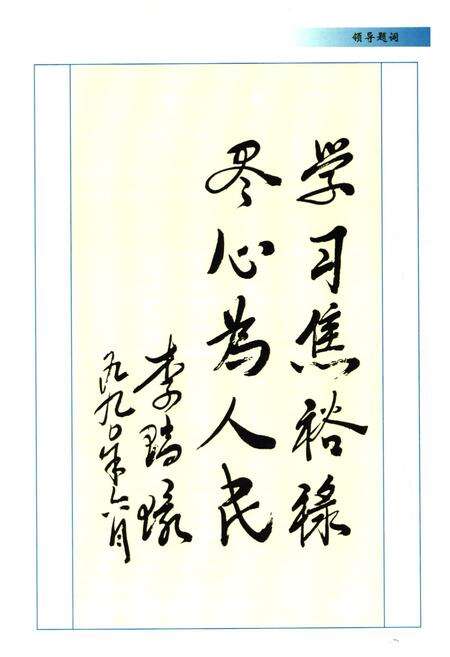 领导题词
学习焦裕禄
尽心为人民
李瑞环
一九九〇年六月